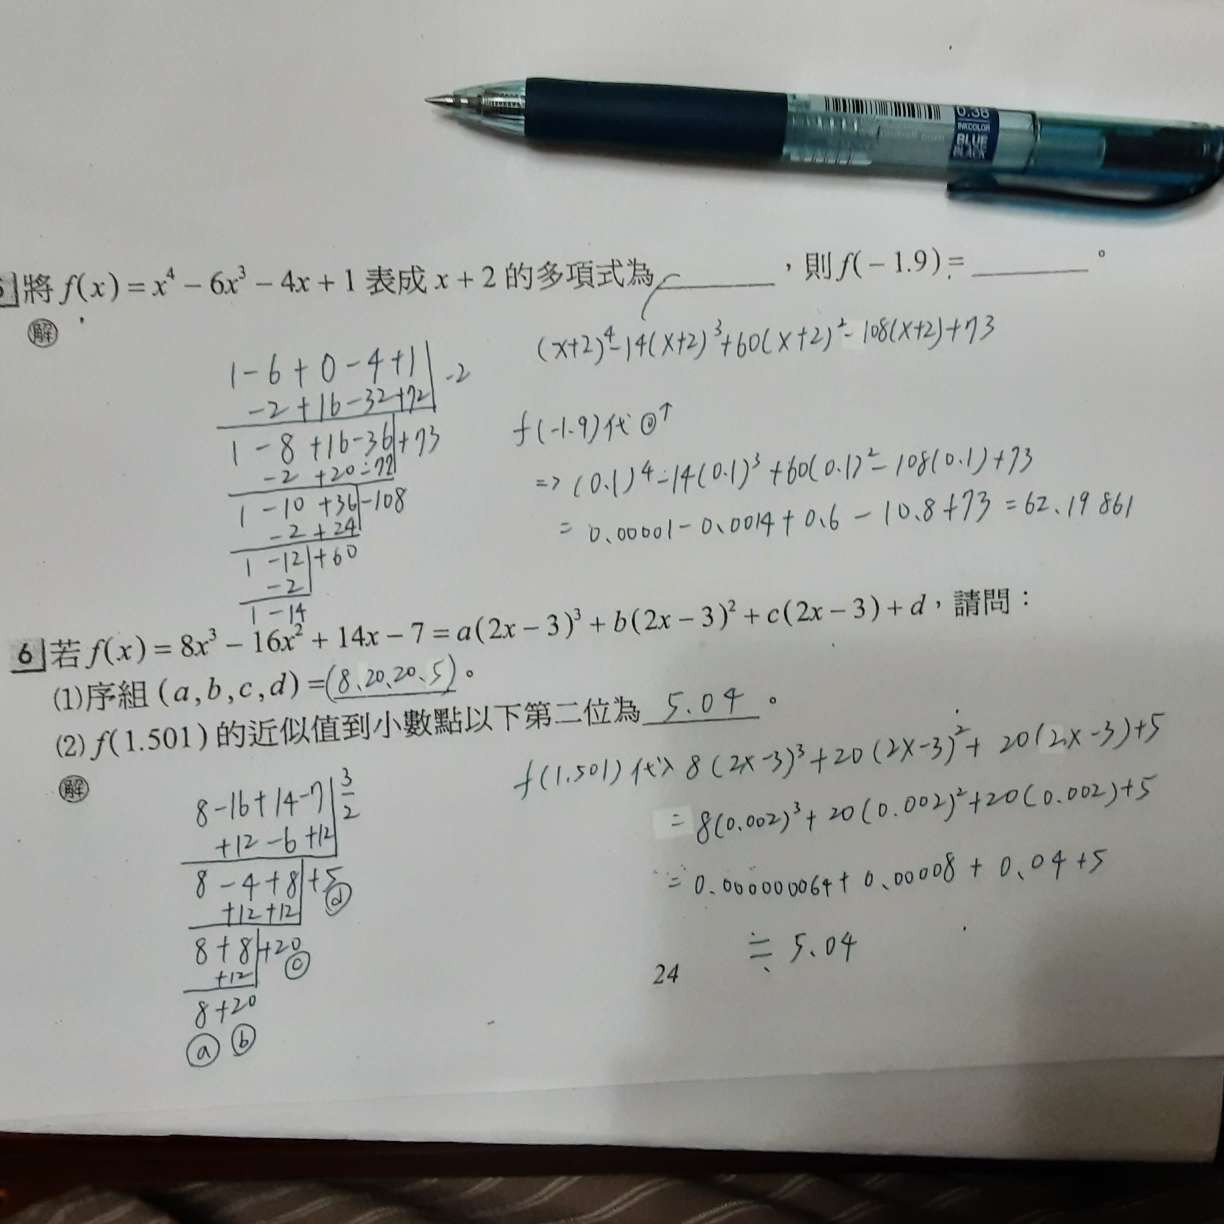 0.38
INKCOLOR
BLUE
BLACK
將 f(x) = x⁴ − 6x³ − 4x + 1 表成 x + 2 的多項式為________，則 f(−1.9) = ________。
解
(x+2)⁴-14(x+2)³+60(x+2)²-108(x+2)+73
1-6+0-4+1 | -2
-2+16-32+72
1-8+16-36+73
-2+20-72
1-10+36-108
-2+24
1-12+60
-2
1-14
f(-1.9)代@↑
=> (0.1)⁴-14(0.1)³+60(0.1)²-108(0.1)+73
= 0.00001-0.0014+0.6-10.8+73=62.19861
6 若 f(x) = 8x³ − 16x² + 14x − 7 = a(2x − 3)³ + b(2x − 3)² + c(2x − 3) + d，請問：
(1)序組 (a, b, c, d) = (8、20、20、5)。
(2) f(1.501) 的近似值到小數點以下第二位為 5.04。
解
8-16+14-7 | 3/2
+12-6+12
8-4+8+5
ⓓ
+12+12
8+8+20
ⓒ
+12
8+20
ⓐ ⓑ
f(1.501)代入 8(2x-3)³+20(2x-3)²+20(2x-3)+5
= 8(0.002)³+20(0.002)²+20(0.002)+5
= 0.000000064+0.00008+0.04+5
≒ 5.04
24